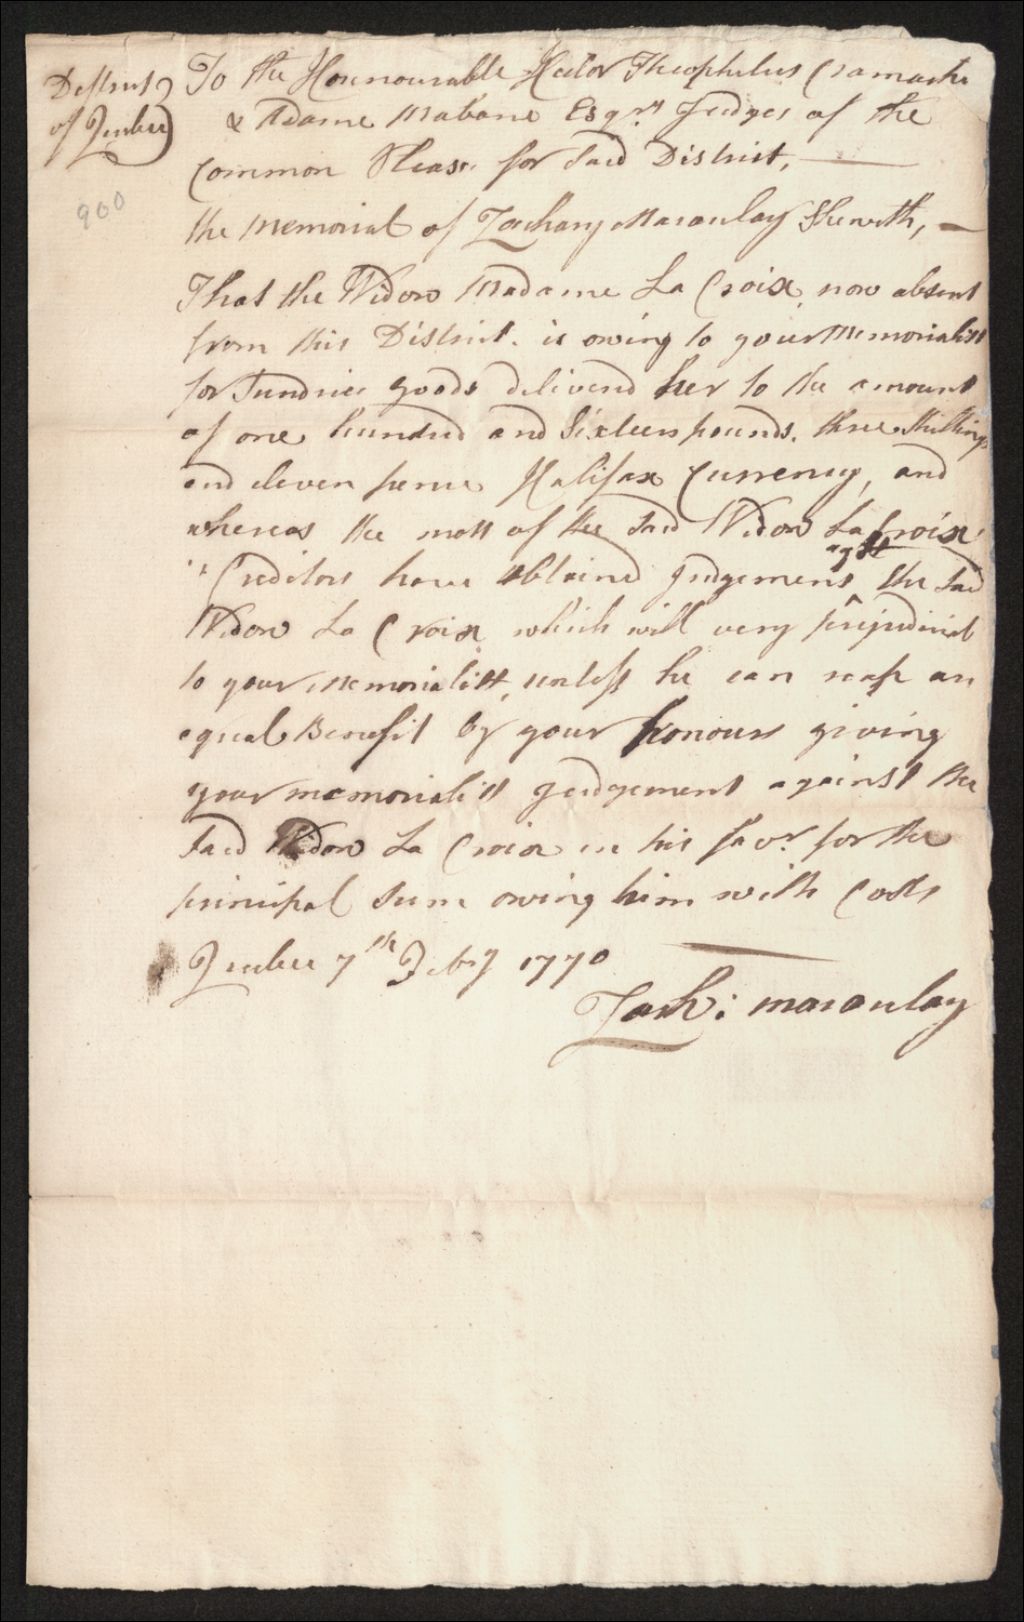 District
of Quebec
900
To the Honnourable Hector Theophilus Cramache
& Adame Mabane Esqrs Judges of the
Common Pleas. for Said District,
the Memorial of Zachary Macaulay Sheweth,
That the Widow Madame La Croix, now absent
from this District. is owing to your Memorialist
for Sundries goods deliverd her to the amount
of one hundred and Sixteen pounds. three Shillings
and eleven pence Halifax Currency, and
whereas the most of the Said Widow La Croix
Creditors have obtained Judgement agst the Said
Widow La Croix, which will very prejudicial
to your Memorialist, unless he can reap an
equal Benefit by your honours giving
your memorialist Judgement against the
Said Widow La Croix in his favr. for the
principal Sum owing him with Costs
Quebec 7th Febry 1770
Zach: Macaulay